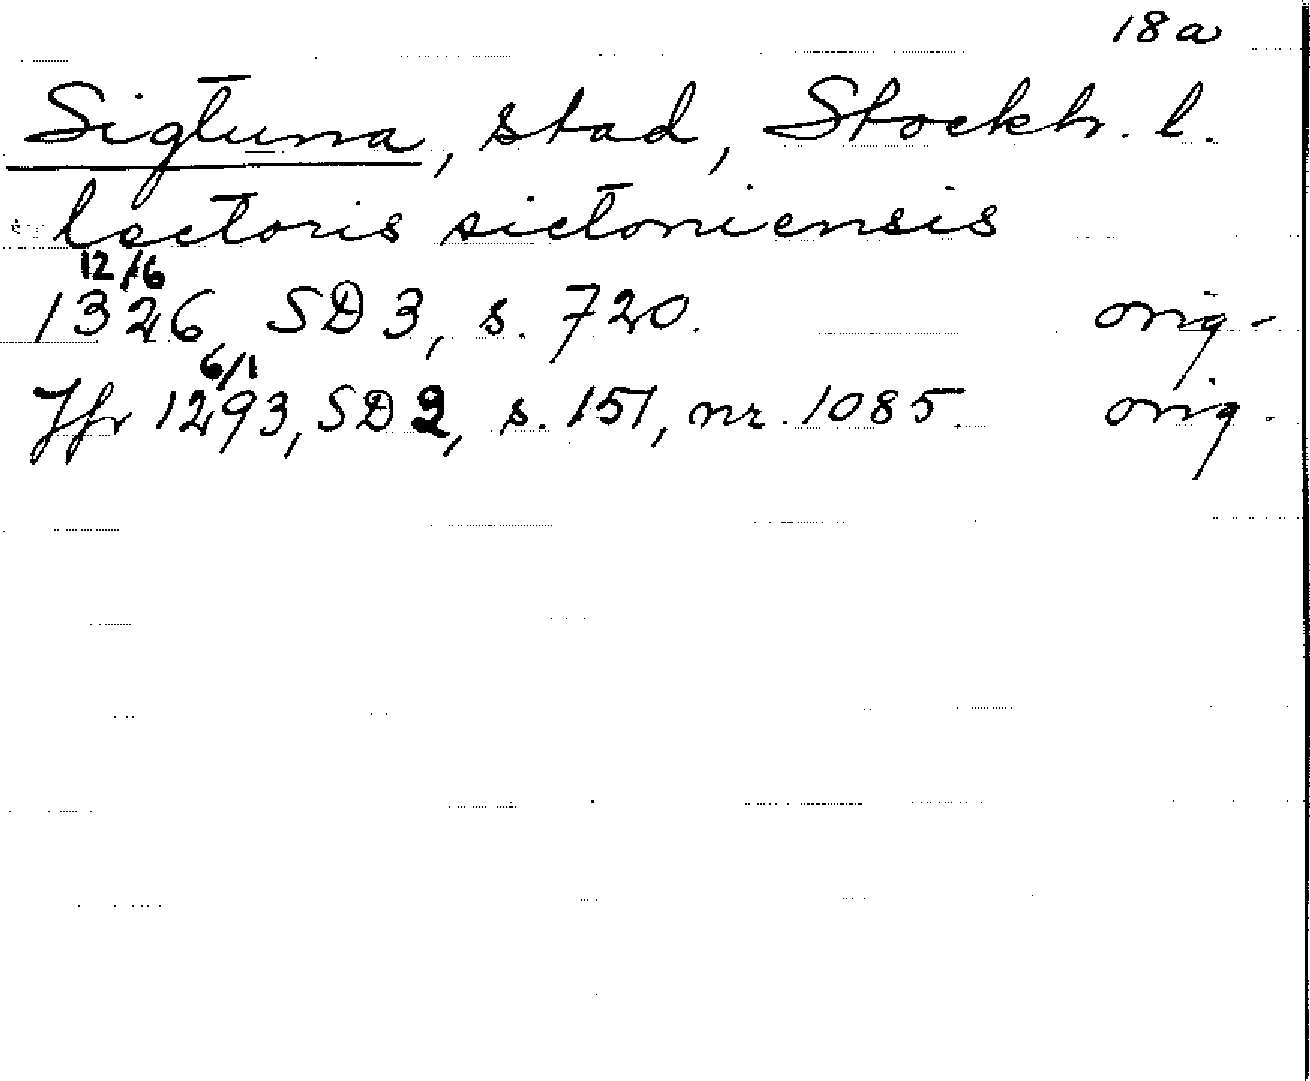 18a
Sigtuna, stad, Stockh. l.
lectoris sictoniensis
12/6
1326, SD 3, s. 720. orig.
6/1
Jfr 1293, SD 2, s. 151, nr. 1085. orig.